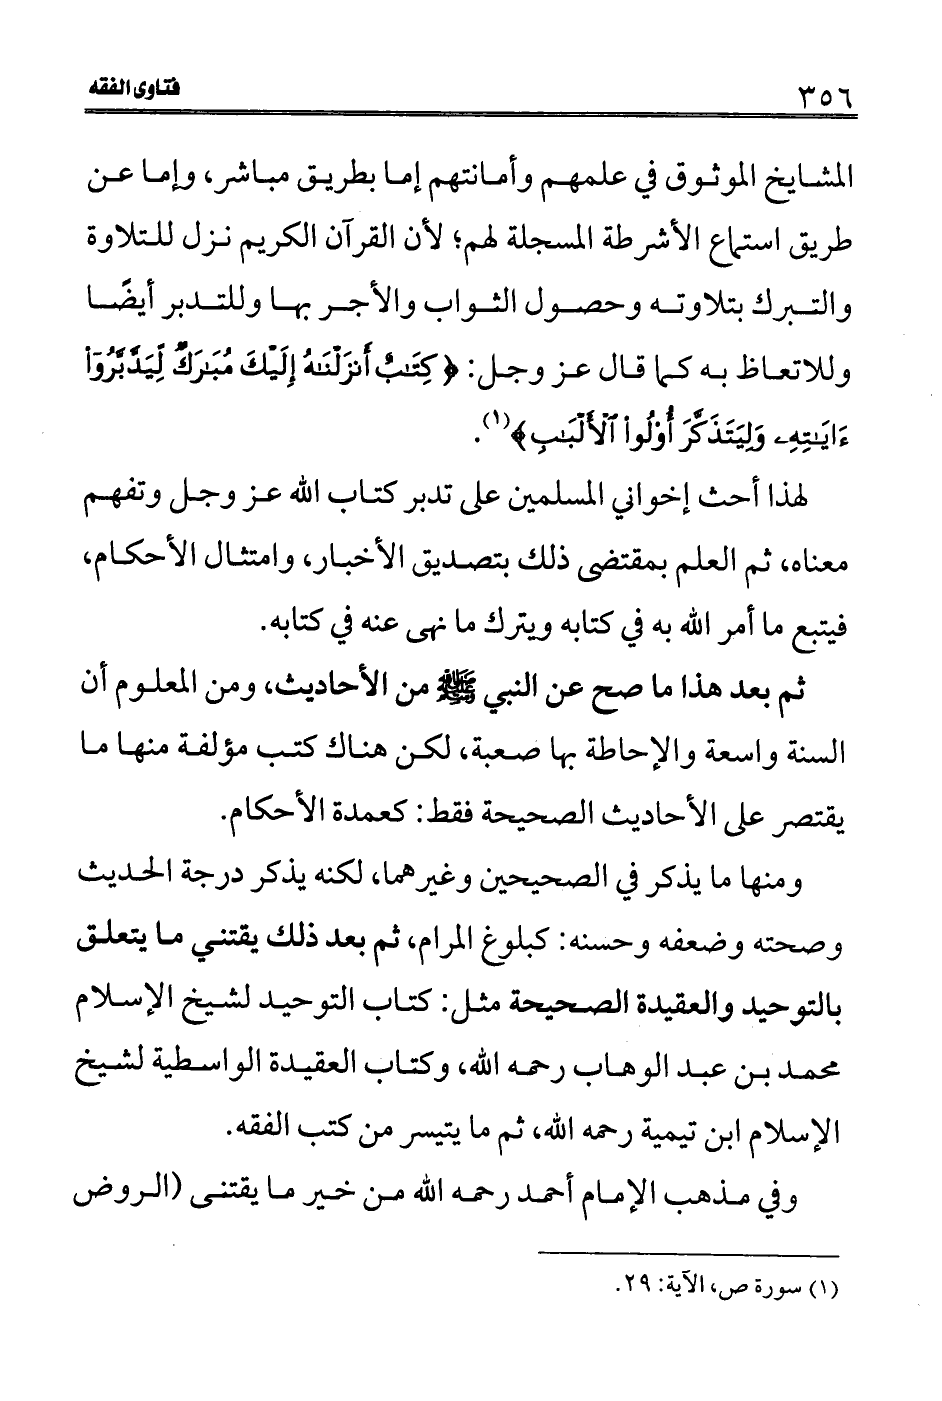 ٣٥٦ فتاوى الفقه
المشايخ الموثوق في علمهم وأمانتهم إما بطريق مباشر، وإما عن
طريق استماع الأشرطة المسجلة لهم؛ لأن القرآن الكريم نزل للتلاوة
والتبرك بتلاوته وحصول الثواب والأجر بها وللتدبر أيضًا
وللاتعاظ به كما قال عز وجل: ﴿كِتَٰبٌ أَنزَلْنَٰهُ إِلَيْكَ مُبَٰرَكٌ لِّيَدَّبَّرُوٓا۟
ءَايَٰتِهِۦ وَلِيَتَذَكَّرَ أُو۟لُوا۟ ٱلْأَلْبَٰبِ﴾(١).
لهذا أحث إخواني المسلمين على تدبر كتاب الله عز وجل وتفهم
معناه، ثم العلم بمقتضى ذلك بتصديق الأخبار، وامتثال الأحكام،
فيتبع ما أمر الله به في كتابه ويترك ما نهى عنه في كتابه.
ثم بعد هذا ما صح عن النبي ﷺ من الأحاديث، ومن المعلوم أن
السنة واسعة والإحاطة بها صعبة، لكن هناك كتب مؤلفة منها ما
يقتصر على الأحاديث الصحيحة فقط: كعمدة الأحكام.
ومنها ما يذكر في الصحيحين وغيرهما، لكنه يذكر درجة الحديث
وصحته وضعفه وحسنه: كبلوغ المرام، ثم بعد ذلك يقتني ما يتعلق
بالتوحيد والعقيدة الصحيحة مثل: كتاب التوحيد لشيخ الإسلام
محمد بن عبد الوهاب رحمه الله، وكتاب العقيدة الواسطية لشيخ
الإسلام ابن تيمية رحمه الله، ثم ما يتيسر من كتب الفقه.
وفي مذهب الإمام أحمد رحمه الله من خير ما يقتنى (الروض
(١) سورة ص، الآية: ٢٩.